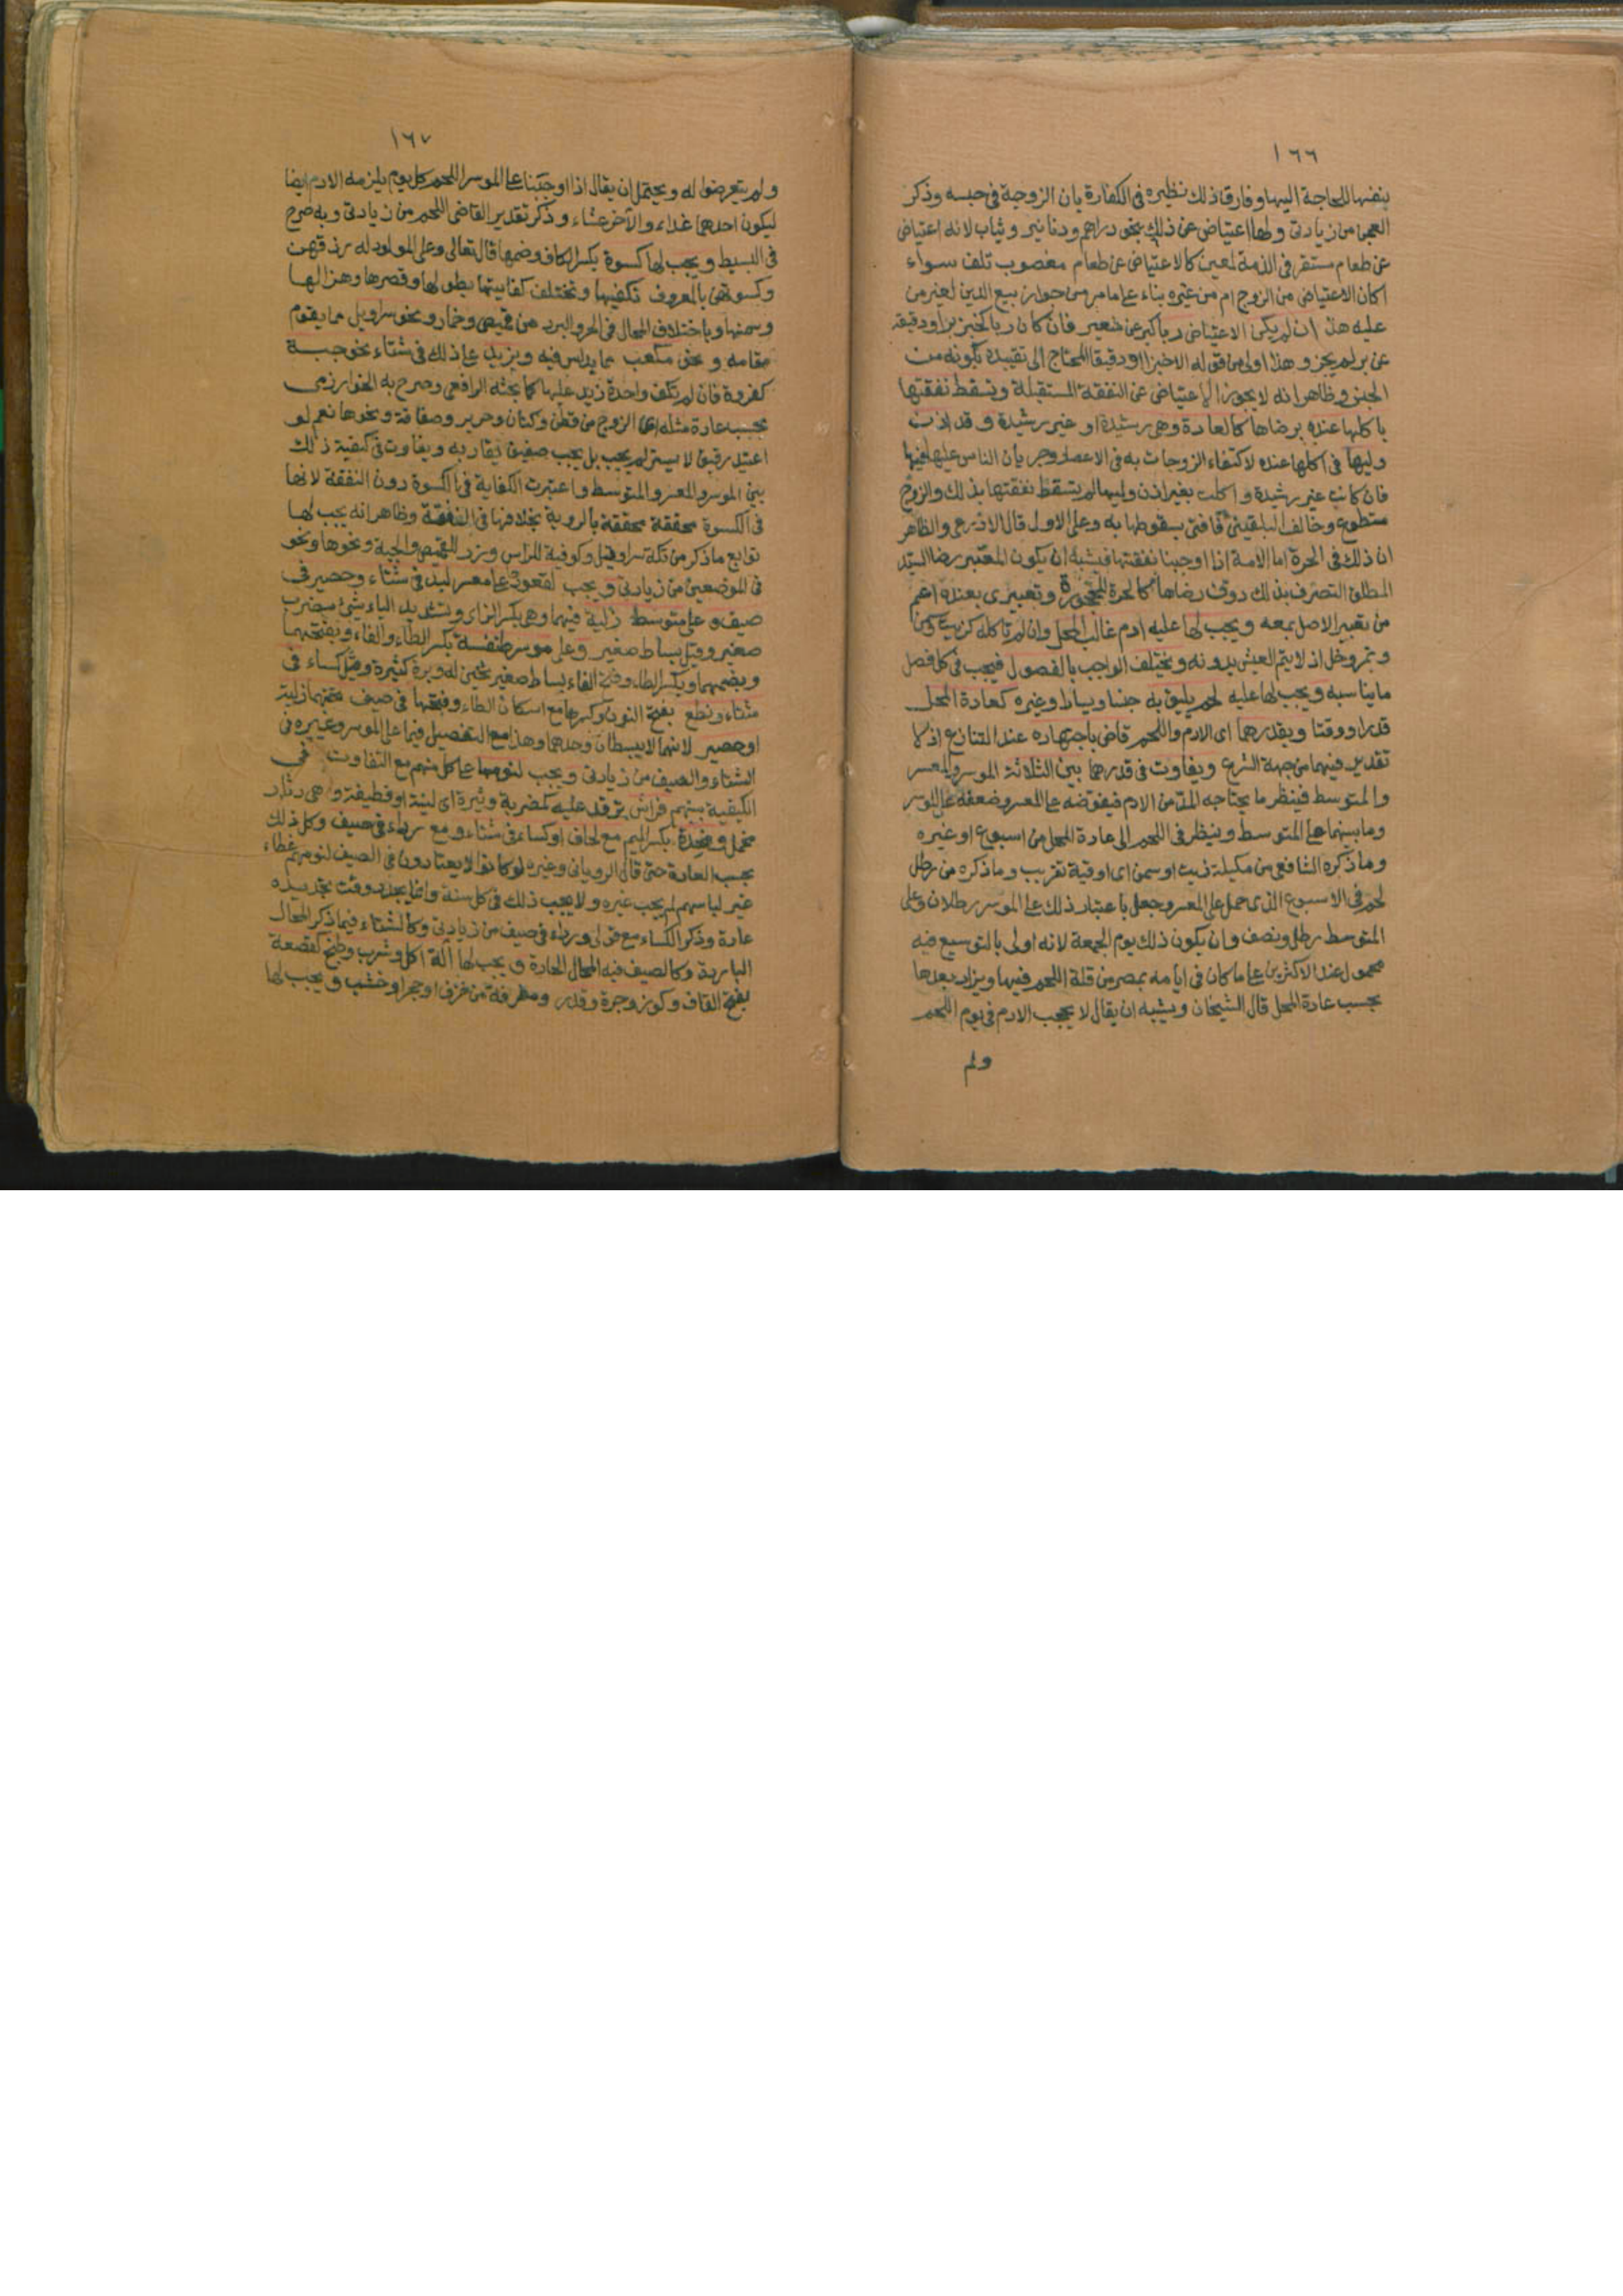 ١٦٦
بنفسها للحاجة اليها وفارق ذلك نظيره في الكفارة بان الزوجة في حبسه وذكر
العجن من زيادتي ولها اعتياض عن ذلك بنحو دراهم ودنانير وثياب لانه اعتياض
عن طعام مستقر في الذمة لمعين كالاعتياض عن طعام مغصوب تلف سواء
اكان الاعتياض من الزوج ام من غيره بناء على ما مر من جواز بيع الدين لغير من
عليه هذا ان لم يكن الاعتياض ربا كبر عن شعير فان كان ربا كخبز بر او دقيقه
عن بر لم يجز وهذا اولى من قوله الا خبزا او دقيقا المحتاج الى تقييده بكونه من
الجنس وظاهر انه لا يجوز الاعتياض عن النفقة المستقبلة وتسقط نفقتها
باكلها عنده برضاها كالعادة وهي رشيدة او غير رشيدة وقد اذن
وليها في اكلها عنده لاكتفاء الزوجات به في الاعصار وجريان الناس عليه فيها
فان كانت غير رشيدة واكلت بغير اذن وليها لم تسقط نفقتها بذلك والزوج
متطوع وخالف البلقيني فافتى بسقوطها به وعلى الاول قال الاذرعي والظاهر
ان ذلك في الحرة اما الامة اذا اوجبنا نفقتها فيشبه ان يكون المعتبر رضا السيد
المطلق التصرف بذلك دون رضاها كالحرة المحجورة وتعبيري بعنده اعم
من تعبير الاصل بمعه ويجب لها عليه ادم غالب المحل وان لم تاكله كزيت وسمن
وتمر وخل اذ لا يتم العيش بدونه ويختلف الواجب بالفصول فيجب في كل فصل
ما يناسبه ويجب لها عليه لحم يليق به جنسا ويسارا وغيره كعادة المحل
قدرا ووقتا ويقدرهما اي الادم واللحم قاض باجتهاده عند التنازع اذ لا
تقدير فيهما من جهة الشرع ويفاوت في قدرهما بين الثلاثة الموسر والمعسر
والمتوسط فينظر ما يحتاجه المد من الادم فيفرضه على المعسر وضعفه على الموسر
وما بينهما على المتوسط وينظر في اللحم الى عادة المحل من اسبوع او غيره
وما ذكره الشافعي من مكيلة زيت او سمن اي اوقية تقريب وما ذكره من رطل
لحم في الاسبوع الذي حمل على المعسر وجعل باعتبار ذلك على الموسر رطلان وعلى
المتوسط رطل ونصف وان يكون ذلك يوم الجمعة لانه اولى بالتوسيع فيه
محمول عند الاكثرين على ما كان في ايامه بمصر من قلة اللحم فيها ويزاد بعدها
بحسب عادة المحل قال الشيخان ويشبه ان يقال لا يجب الادم في يوم اللحم
ولم
١٦٧
ولم يتعرضوا له ويحتمل ان يقال اذا اوجبنا على الموسر اللحم كل يوم يلزمه الادم ايضا
ليكون احدهما غداء والآخر عشاء وذكر تقدير القاضي اللحم من زيادتي وبه صرح
في البسيط ويجب لها كسوة بكسر الكاف وضمها قال تعالى وعلى المولود له رزقهن
وكسوتهن بالمعروف تكفيها وتختلف كفايتها بطولها وقصرها وهزالها
وسمنها وباختلاف المحال في الحر والبرد من قميص وخمار ونحو سراويل مما يقوم
مقامه ونحو مكعب مما يداس فيه ويزيد على ذلك في شتاء نحو جبة
كفروة فان لم تكف واحدة زيد عليها كما بحثه الرافعي وصرح به الخوارزمي
بحسب عادة مثله اي الزوج من قطن وكتان وحرير وصفاقة ونحوها نعم لو
اعتيد رقيق لا يستر لم يجب بل يجب صفيق يقاربه ويفاوت في كيفية ذلك
بين الموسر والمعسر والمتوسط واعتبرت الكفاية في الكسوة دون النفقة لانها
في الكسوة محققة محققة بالروية بخلافها في النفقة وظاهر انه يجب لها
توابع ما ذكر من تكة سراويل وكوفية للراس وزر للقميص والجبة ونحوها ونحو
في الموضعين من زيادتي ويجب لقعودها على معسر لبد في شتاء وحصير في
صيف وعلى متوسط زلية فيهما وهي بكسر الزاي وتشديد الياء شيء مضرب
صغير وقيل بساط صغير وعلى موسر طنفسة بكسر الطاء والفاء وبفتحهما
وبضمهما وبكسر الطاء وفتح الفاء بساط صغير ثخين له وبرة كثيرة وقيل كساء في
شتاء ونطع بفتح النون وكسرها مع اسكان الطاء وفتحها في صيف تحتهما زلية
او حصير لانهما لا يبسطان وحدهما وهذا مع التفصيل فيما على الموسر وغيره في
الشتاء والصيف من زيادتي ويجب لنومها على كل منهم مع التفاوت في
الكيفية بينهم فراش ترقد عليه كمضربة وثيرة اي لينة او قطيفة وهي دثار
مخمل ومخدة بكسر الميم مع لحاف او كساء في شتاء ومع رداء في صيف وكل ذلك
بحسب العادة حتى قال الروياني وغيره لو كانوا لا يعتادون في الصيف لنومهم غطاء
غير لباسهم لم يجب غيره ولا يجب ذلك في كل سنة وانما يجدد وقت تجديده
عادة وذكر الكساء مع قولي ورداء في صيف من زيادتي وكالشتاء فيما ذكر المحال
الباردة وكالصيف فيه المحال الحارة ويجب لها آلة اكل وشرب وطبخ كقصعة
بفتح القاف وكوز وجرة وقدر ومغرفة من خزف او حجر او خشب ويجب لها